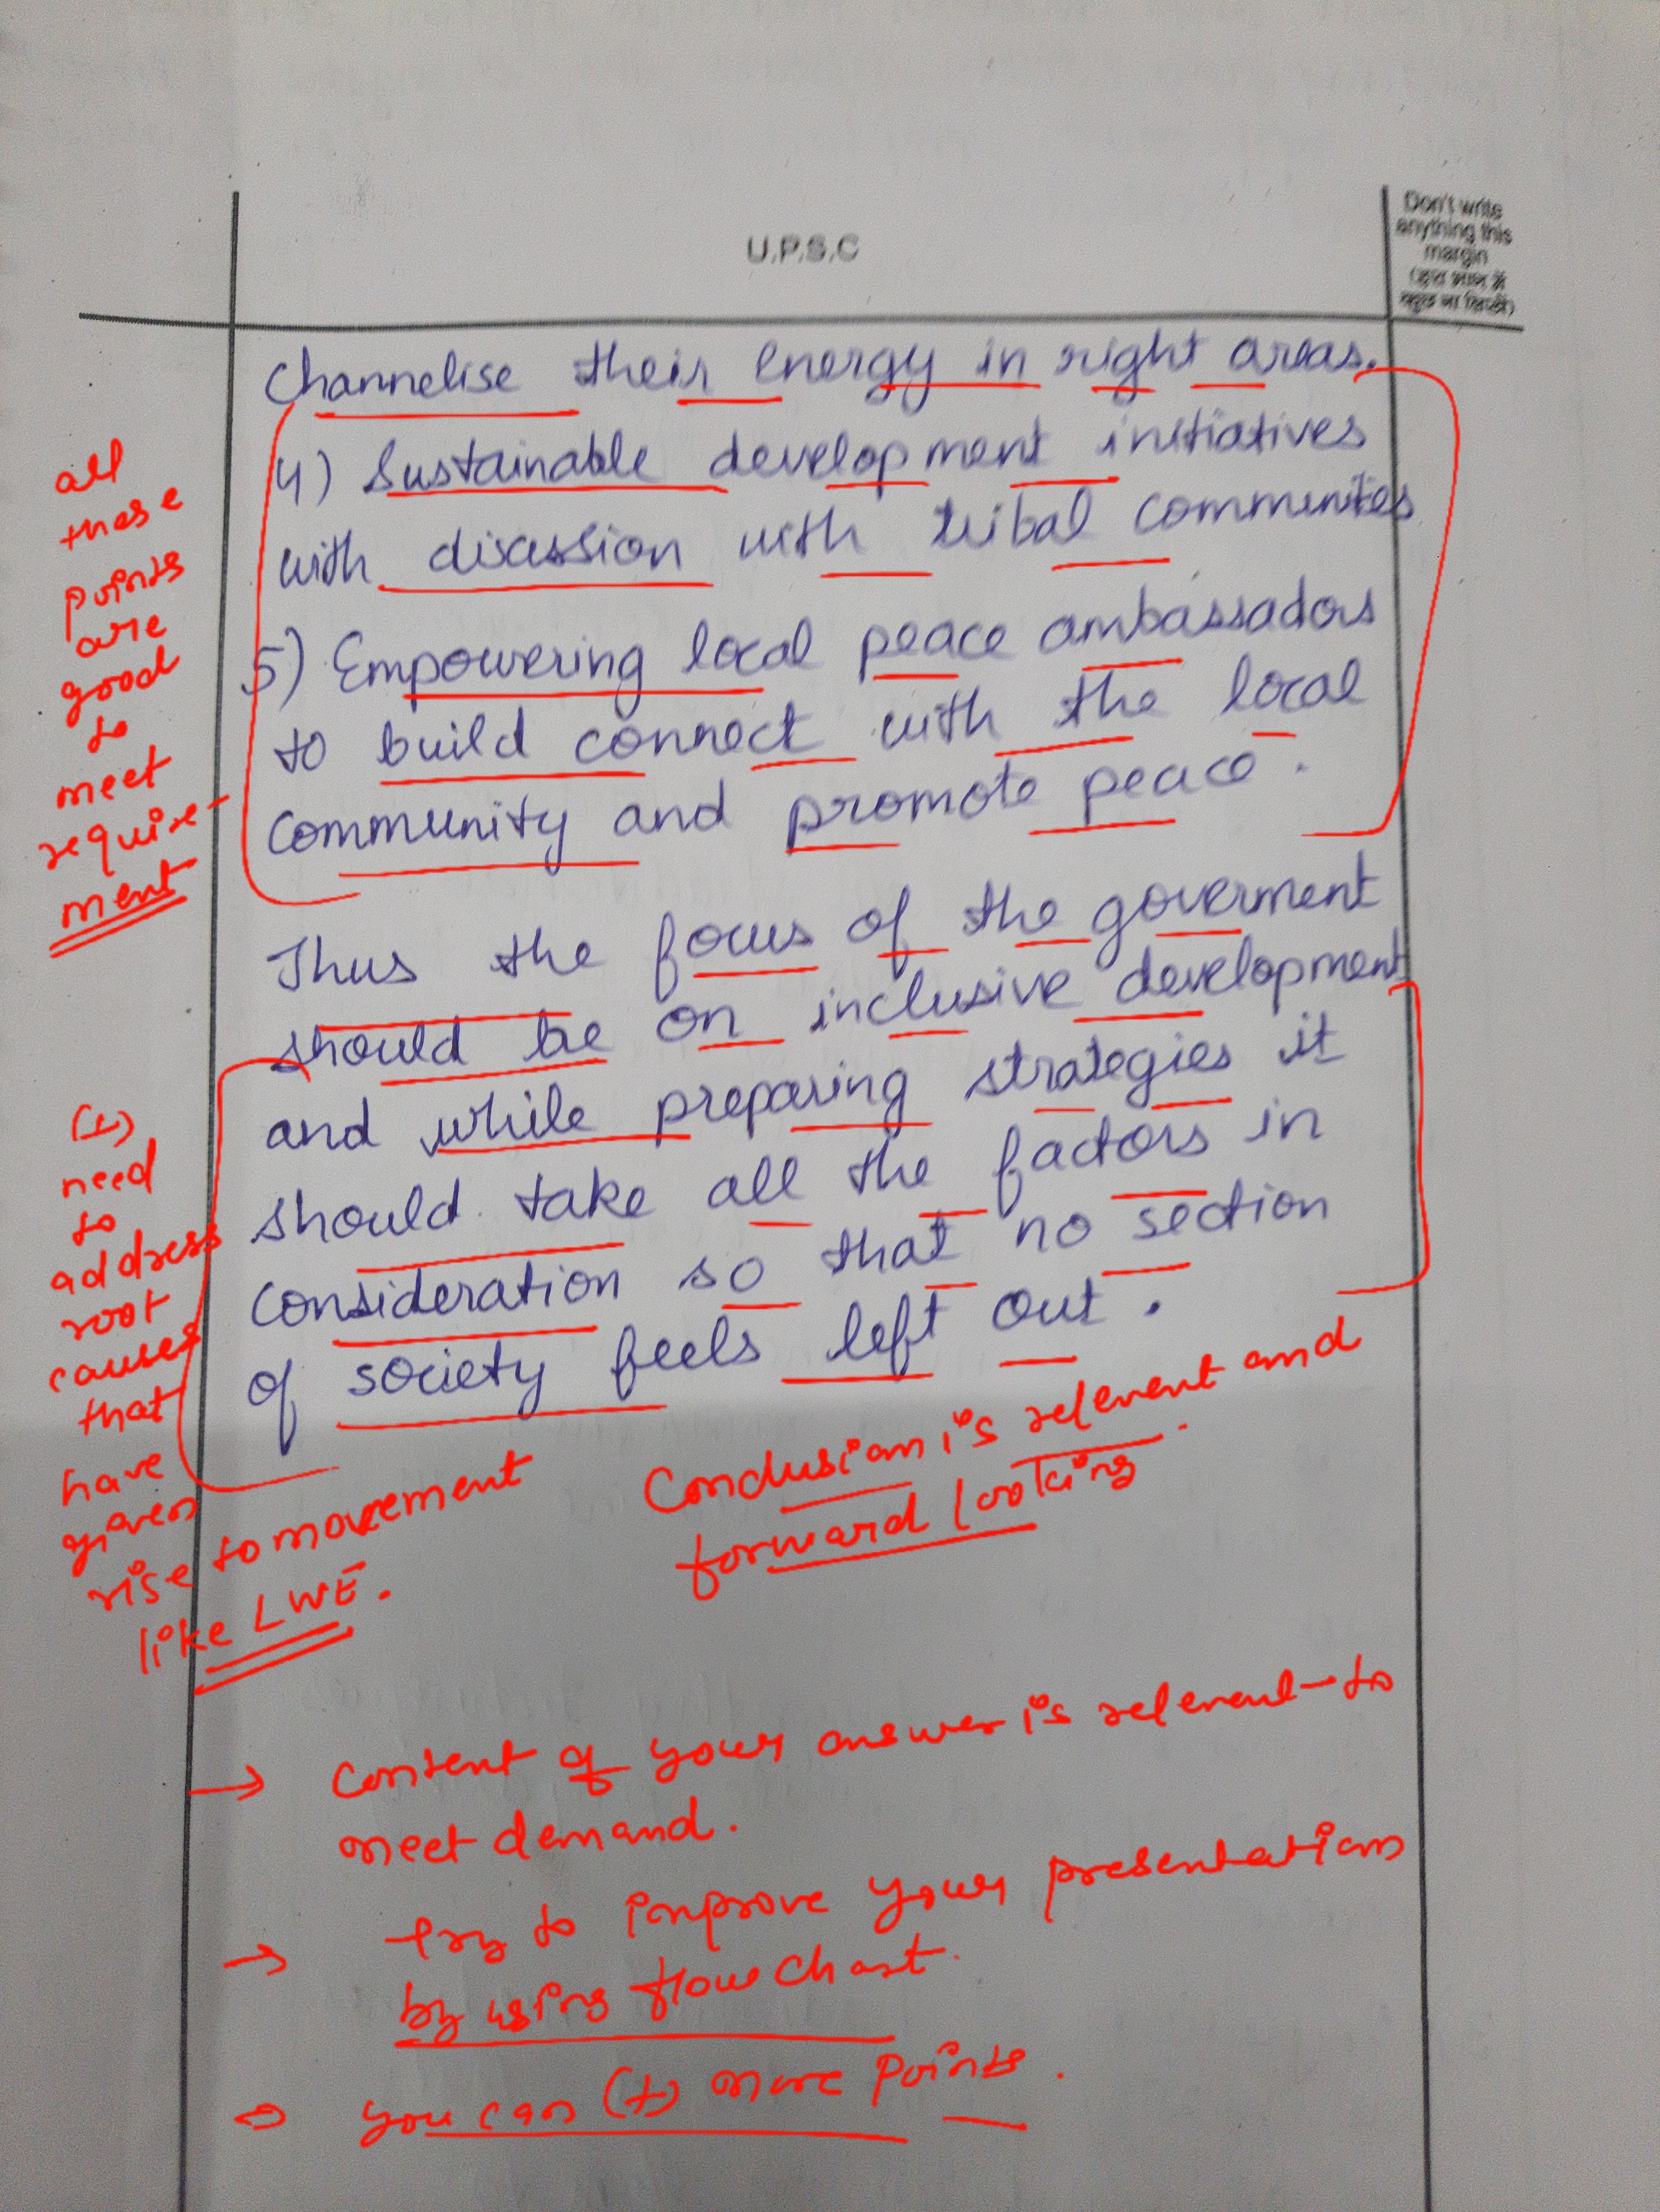 U.P.S.C
Don't write
anything this
margin
Channelise their energy in right areas.
4) Sustainable development initiatives
with discussion with tribal communities
5) Empowering local peace ambassadors
to build connect with the local
community and promote peace.
Thus the focus of the goverment
should be on inclusive development
and while preparing strategies it
should take all the factors in
consideration so that no section
of society feels left out.
all
these
points
are
good
to
meet
require-
ment
(+)
need
to
address
root
causes
that
have
given
rise to movement
like LWE.
Conclusion is relevent and
forward looking.
→ Content of your answer is relevent to
meet demand.
→ try to improve your presentation
by using flow chart.
→ you can (+) more points.